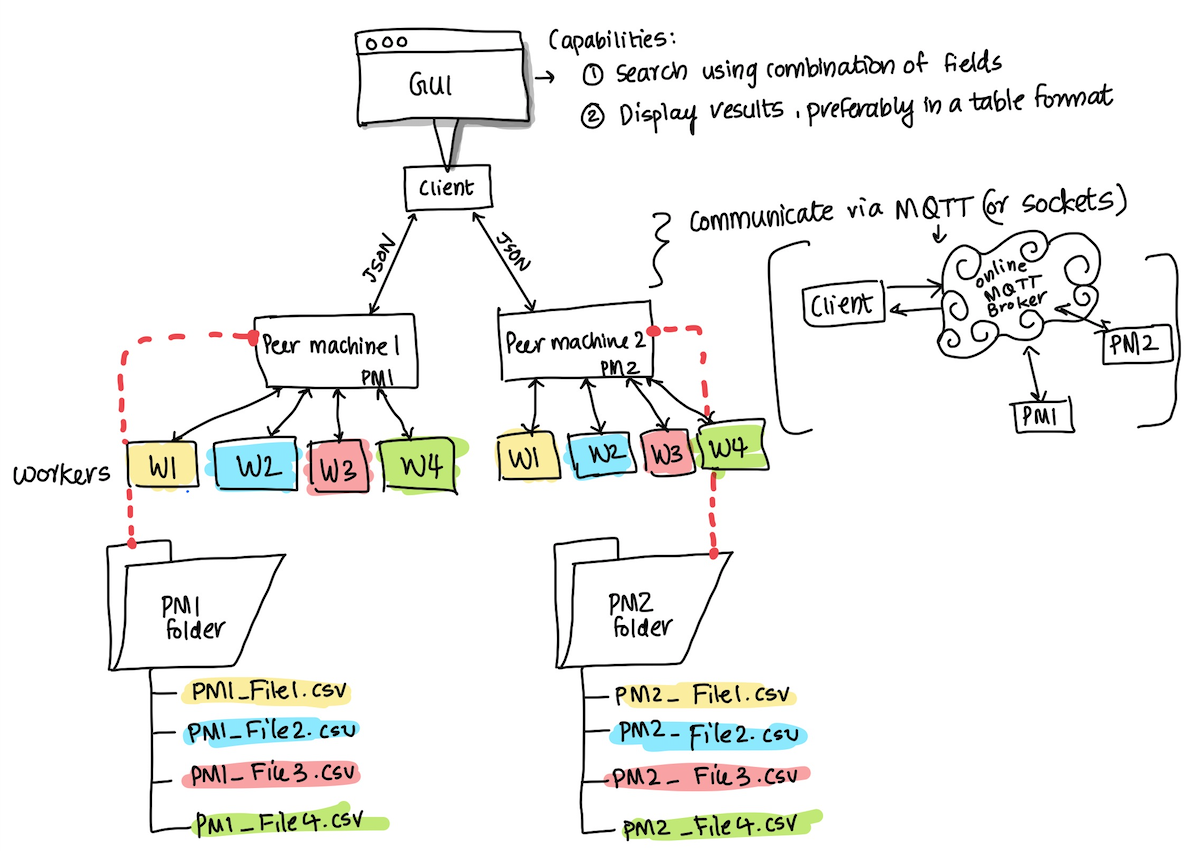 GUI
Capabilities:
① Search using combination of fields
② Display results, preferably in a table format
Client
JSON
JSON
Communicate via MQTT (or sockets)
Client
online
MQTT
Broker
PM2
PM1
Peer machine 1
PM1
Peer machine 2
PM2
workers
W1
W2
W3
W4
W1
W2
W3
W4
PM1
folder
PM1_File1.csv
PM1_File2.csv
PM1_File3.csv
PM1_File4.csv
PM2
folder
PM2_File1.csv
PM2_File2.csv
PM2_File3.csv
PM2_File4.csv